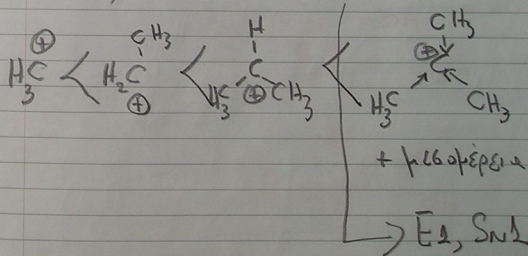 H₃C⊕ < H₂C⊕–CH₃ < H₃C–C⊕(H)–CH₃ < H₃C→C⊕(←CH₃)←CH₃
+ μεσομέρεια
→ E1, SN1